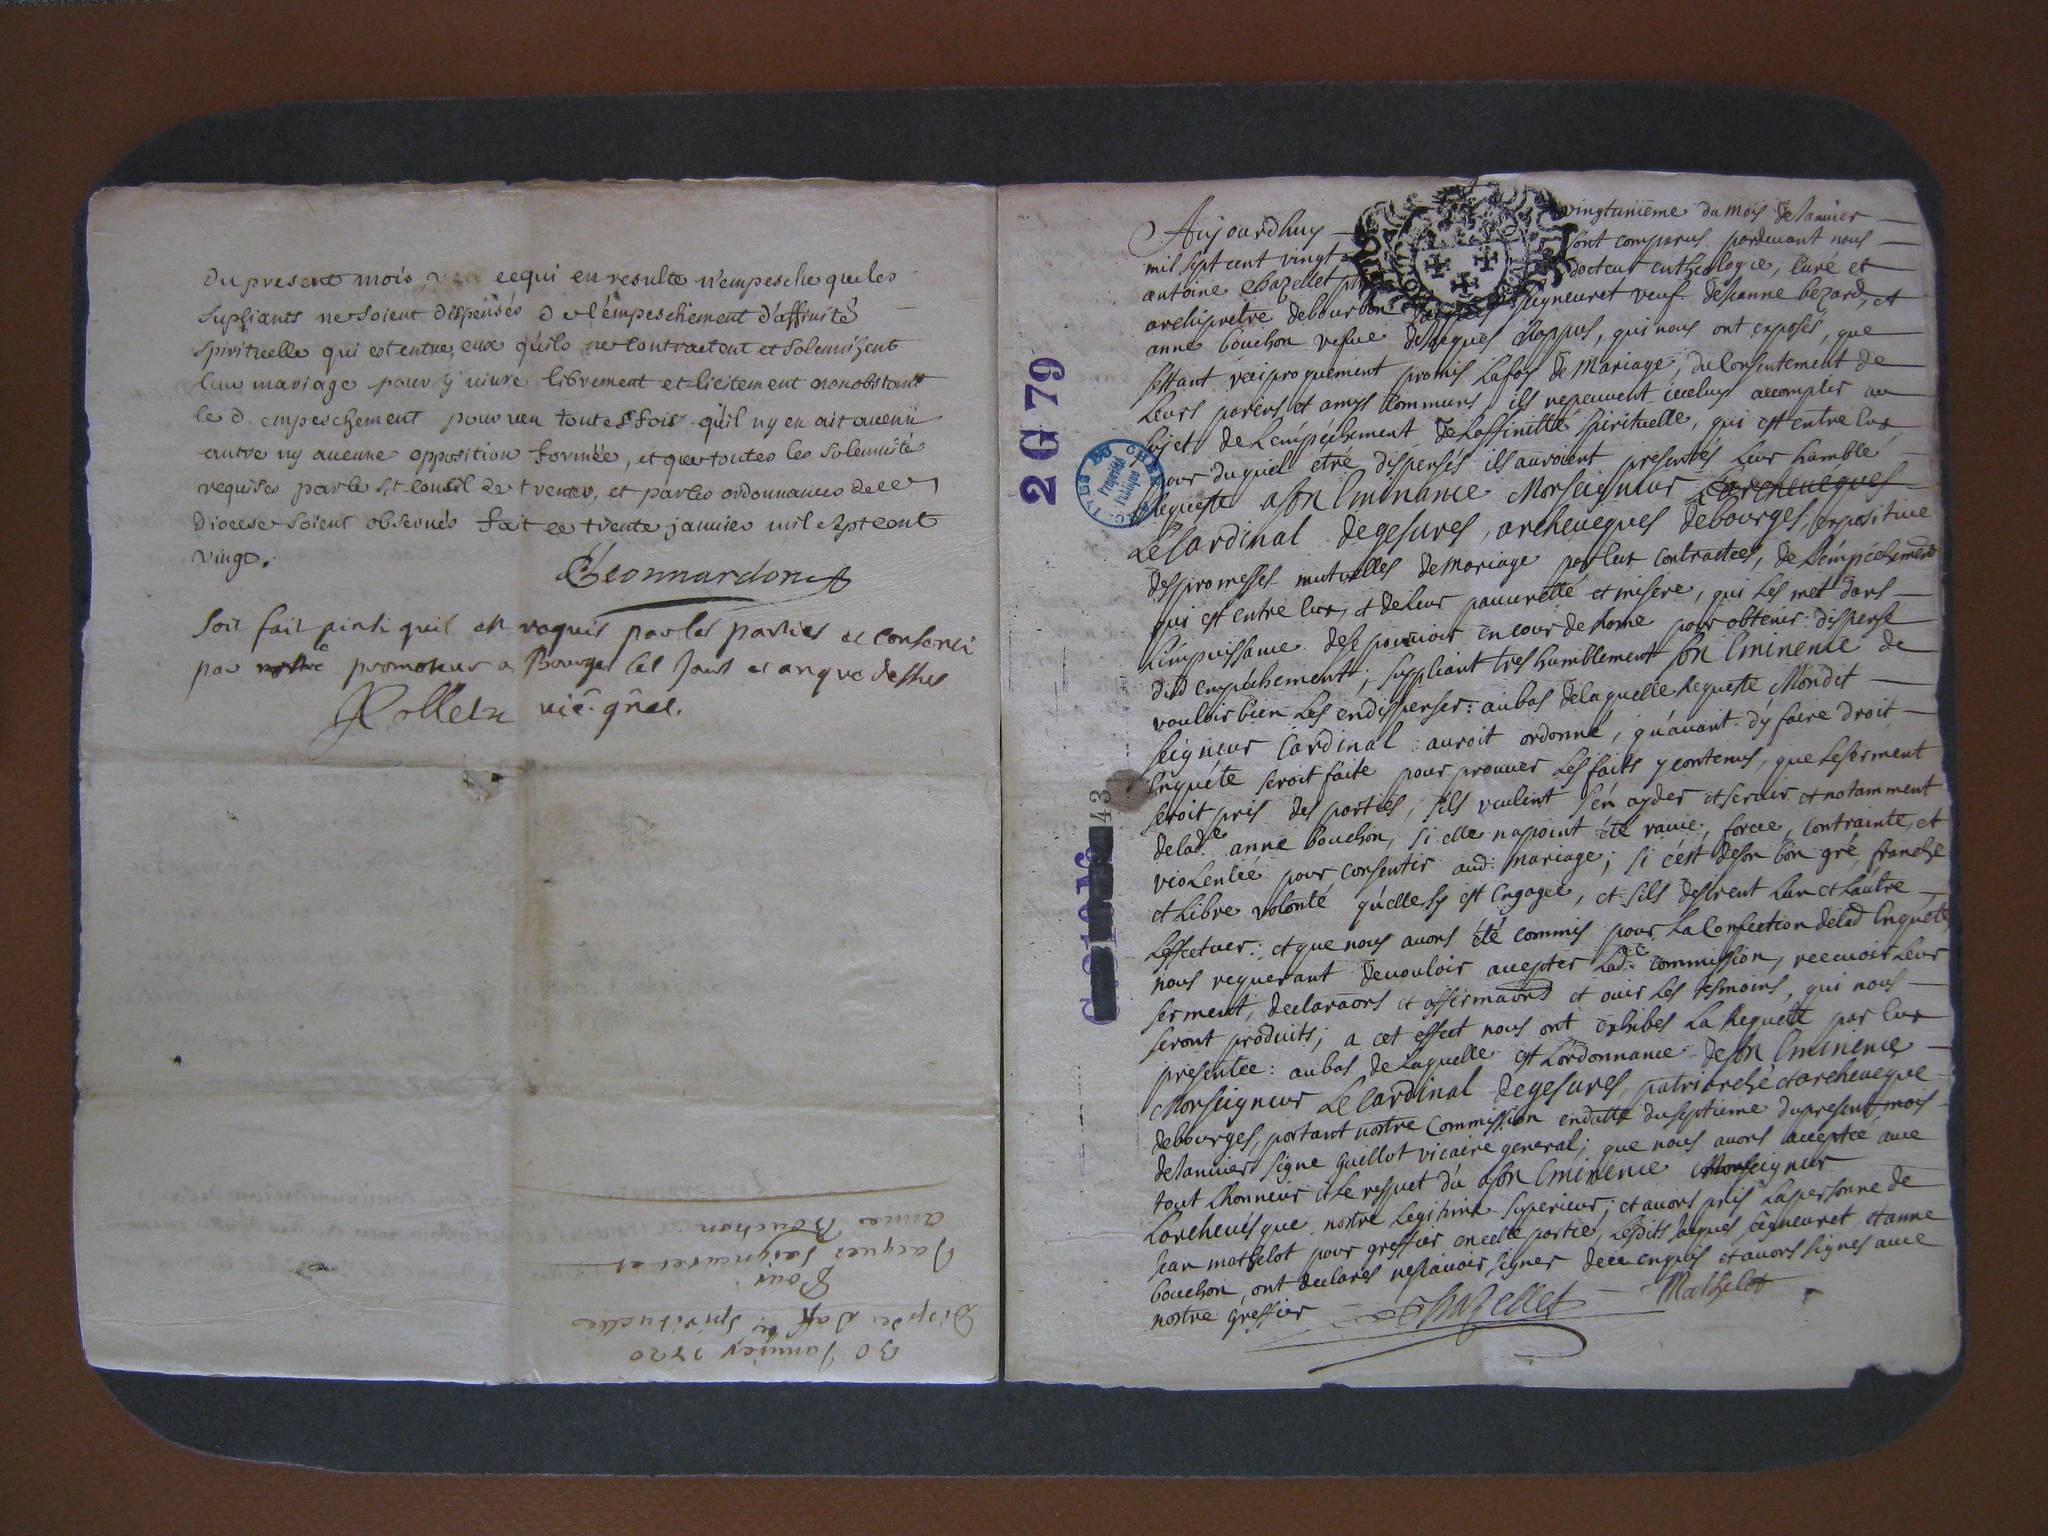 du present mois, ce qui en resulte n'empesche que les
supliants ne soient dispensés de l'empeschement d'affinité
spirituelle qui est entre eux qu'ils ne contractent et solemnizent
leur mariage pour y vivre librement et licitement nonobstant
le d. empeschement pourveu toutesfois qu'il ny en ait aucun
autre ny aucune opposition formée, et que toutes les solemnités
requises par le st. Concil de trente, et par les ordonnances de ce
Diocese soient observés fait ce trente janvier mil sept cent
vingt.
Soit fait ainsi quil est requis par les parties et consenti
par nostre promoteur a Bourges les jours et an que dessus
vic. gñal.
30 Janvier 1720
Dispēn daff. spirituelle
Pour
Jacques Seigneuret et
anne Bouchon
2 G 79
43
Aujourdhuy vingtunième du mois de Janvier
mil sept cent vingt sont comparus pardevant nous
antoine Chazellet docteur en theologie, curé et
archiprêtre de bourbon Seigneuret veuf de Jeanne bezard, et
anne bouchon vefue de Jacques Chappus, qui nous ont exposés, que
s'estant reciproquement promis la foy de Mariage, du Consentement de
leurs parens et amys Communs, ils ne peuvent iceluy accomplir au
sujet de L'empêchement de L'affinitté spirituelle, qui est entre Eux
pour duquel etre dispensés ils auroient presentés leur humble
Requeste a son Eminance Monseigneur L'archeuêques
Le Cardinal de gesures, archeuêques de bourges, expositive
des promesses mutuelles de mariage par Eux contractées, de L'empêchement
qui est entre Eux, et de leur pauuretté et misere, qui les met dans
L'impuissance de se pouruoir en cour de Rome pour obtenir dispense
dud empêchement; suppliant tres humblement son Eminence de
vouloir bien Les en dispenser: au bas de laquelle Requeste Mondit
Seigneur Cardinal auroit ordonné, qu'auant d'y faire droit
Enquête seroit faite pour prouuer Les faits y contenus, que Le serment
seroit pris des parties, s'ils veulent s'en ayder et seruir et notamment
de lade anne bouchon, si elle n'a point été ravie, forcée, contrainte, et
violentée pour consentir aud: mariage; si c'est de son bon gré, franche
et Libre volonté qu'elle s'y est Engagée, et s'ils desirent L'un et L'autre
L'effectuer: et que nous auons été commis pour La Confection de lad Enquête
nous requerant de vouloir accepter Lade commission, receuoir Leur
serment, declaraõns et affirmaõns et ouir Les tesmoins, qui nous
seront produits; a cet effect nous ont exhibés La Requette par Eux
presentée: au bas de laquelle est L'ordonnance de son Eminence
Monseigneur Le Cardinal de gesures, patriarche et archeueque
de bourges, portant nostre Commission en datte du septieme du present mois
de Janvier signé Guillot vicaire general; que nous auons acceptée auec
tout L'honneur et Le respect dû a son Eminence Monseigneur
L'archeuésque nostre Legitime superieur; et auons pris La personne de
Jean mathelot pour greffier en cette partie, Lesdits Jaques seigneuret et anne
bouchon, ont declarés ne sçauoir signer de ce enquis et auons signés auec
nostre greffier Chazellet Mathelot